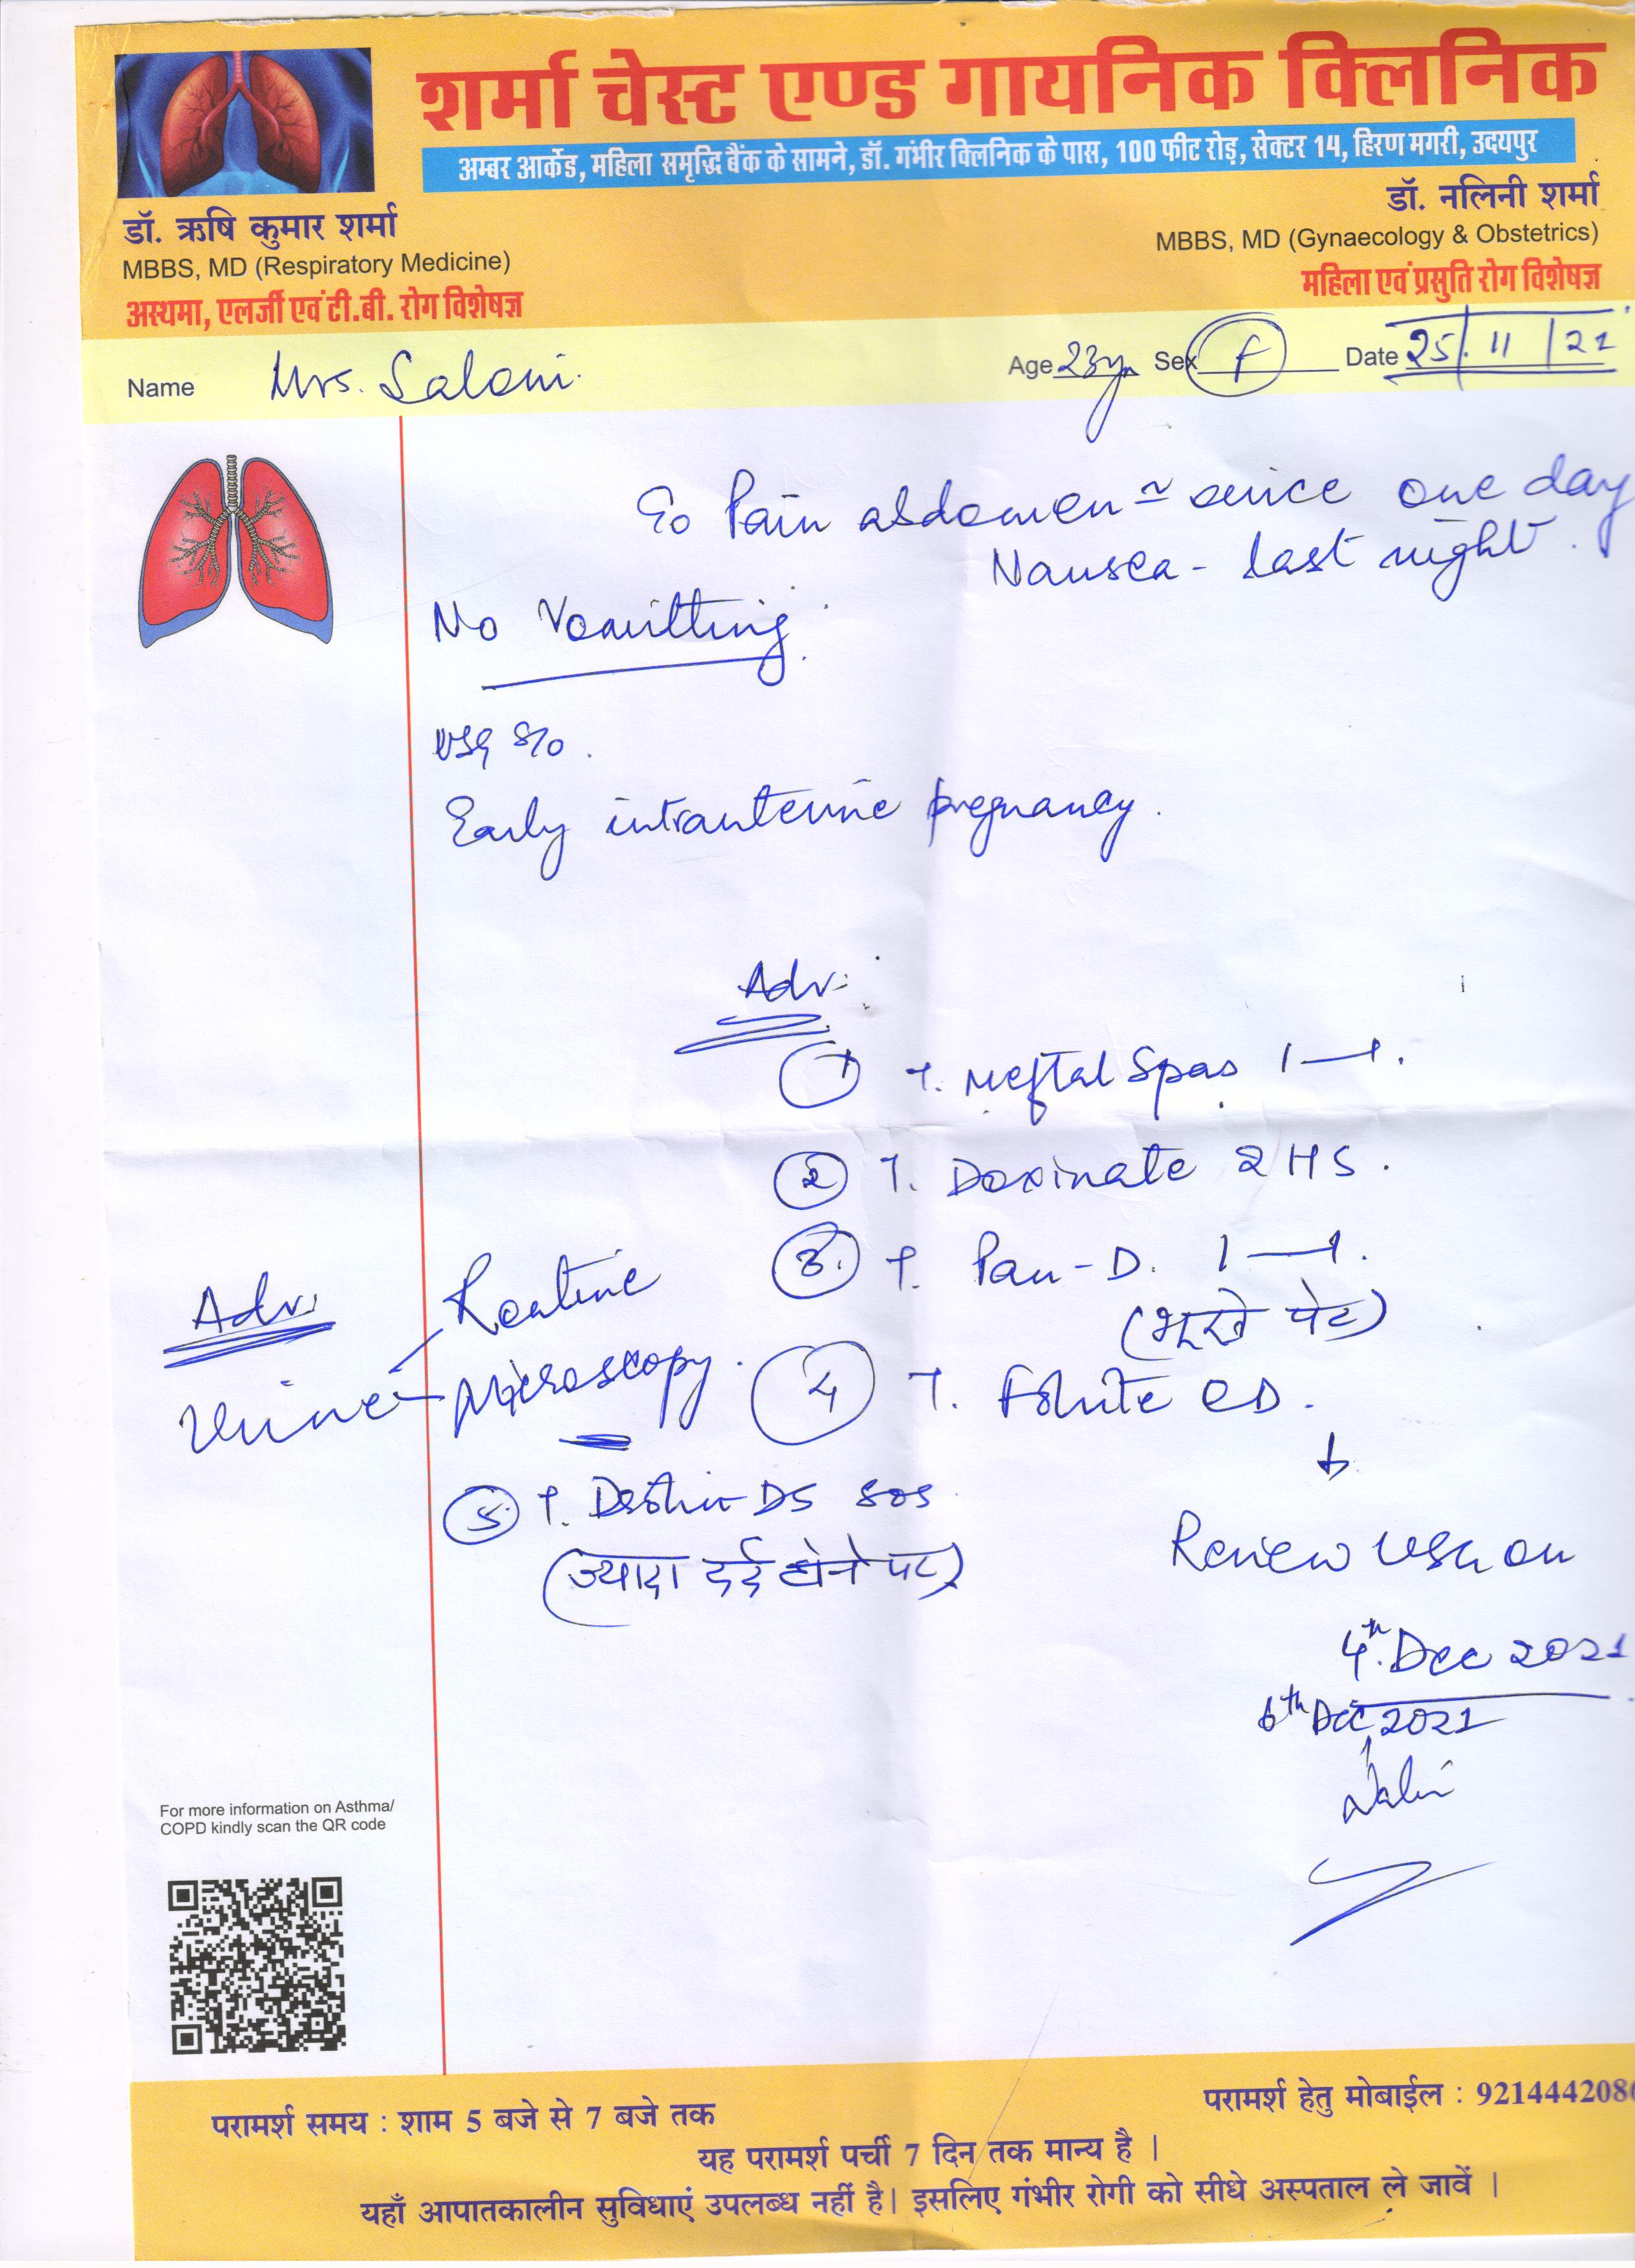 शर्मा चेस्ट एण्ड गायनिक क्लिनिक
अम्बर आर्केड, महिला समृद्धि बैंक के सामने, डॉ. गंभीर क्लिनिक के पास, 100 फीट रोड़, सेक्टर 14, हिरण मगरी, उदयपुर
डॉ. ऋषि कुमार शर्मा
MBBS, MD (Respiratory Medicine)
अस्थमा, एलर्जी एवं टी.बी. रोग विशेषज्ञ
डॉ. नलिनी शर्मा
MBBS, MD (Gynaecology & Obstetrics)
महिला एवं प्रसुति रोग विशेषज्ञ
Name Mrs. Saloni. Age 23yr Sex F Date 25/11/21
Pain abdomen since one day
Nausea - last night.
No Vomitting.
USG S/o.
Early intrauterine pregnancy.
Adv:
1 T. Meftal Spas 1—1.
2 T. Doxinate 2 HS.
3. T. Pan-D. 1—1.
(भूखे पेट)
4 T. Folvite OD.
Adv:
Urine - Routine
Microscopy.
5. T. DS SOS
(ज्यादा दर्द होने पर)
Review USG on
4th. Dec 2021
6th Dec 2021
For more information on Asthma/
COPD kindly scan the QR code
परामर्श समय : शाम 5 बजे से 7 बजे तक
परामर्श हेतु मोबाईल : 921444208
यह परामर्श पर्ची 7 दिन तक मान्य है ।
यहाँ आपातकालीन सुविधाएं उपलब्ध नहीं है। इसलिए गंभीर रोगी को सीधे अस्पताल ले जावें ।